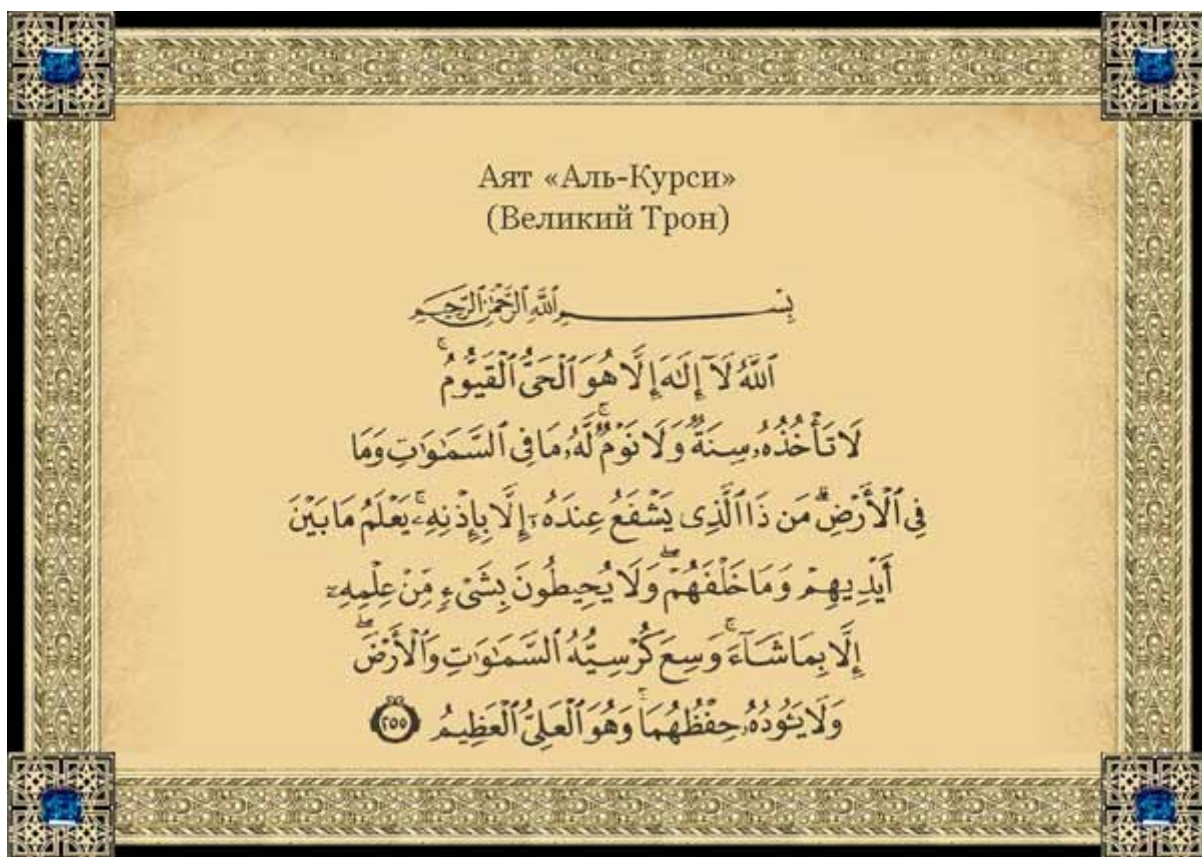 Аят «Аль-Курси»
(Великий Трон)
بِسْمِ ٱللَّهِ ٱلرَّحْمَٰنِ ٱلرَّحِيمِ
ٱللَّهُ لَآ إِلَٰهَ إِلَّا هُوَ ٱلْحَىُّ ٱلْقَيُّومُ ۚ
لَا تَأْخُذُهُۥ سِنَةٌ وَلَا نَوْمٌ ۚ لَّهُۥ مَا فِى ٱلسَّمَٰوَٰتِ وَمَا
فِى ٱلْأَرْضِ ۗ مَن ذَا ٱلَّذِى يَشْفَعُ عِندَهُۥٓ إِلَّا بِإِذْنِهِۦ ۚ يَعْلَمُ مَا بَيْنَ
أَيْدِيهِمْ وَمَا خَلْفَهُمْ ۖ وَلَا يُحِيطُونَ بِشَىْءٍ مِّنْ عِلْمِهِۦٓ
إِلَّا بِمَا شَآءَ ۚ وَسِعَ كُرْسِيُّهُ ٱلسَّمَٰوَٰتِ وَٱلْأَرْضَ ۖ
وَلَا يَـُٔودُهُۥ حِفْظُهُمَا ۚ وَهُوَ ٱلْعَلِىُّ ٱلْعَظِيمُ ٢٥٥